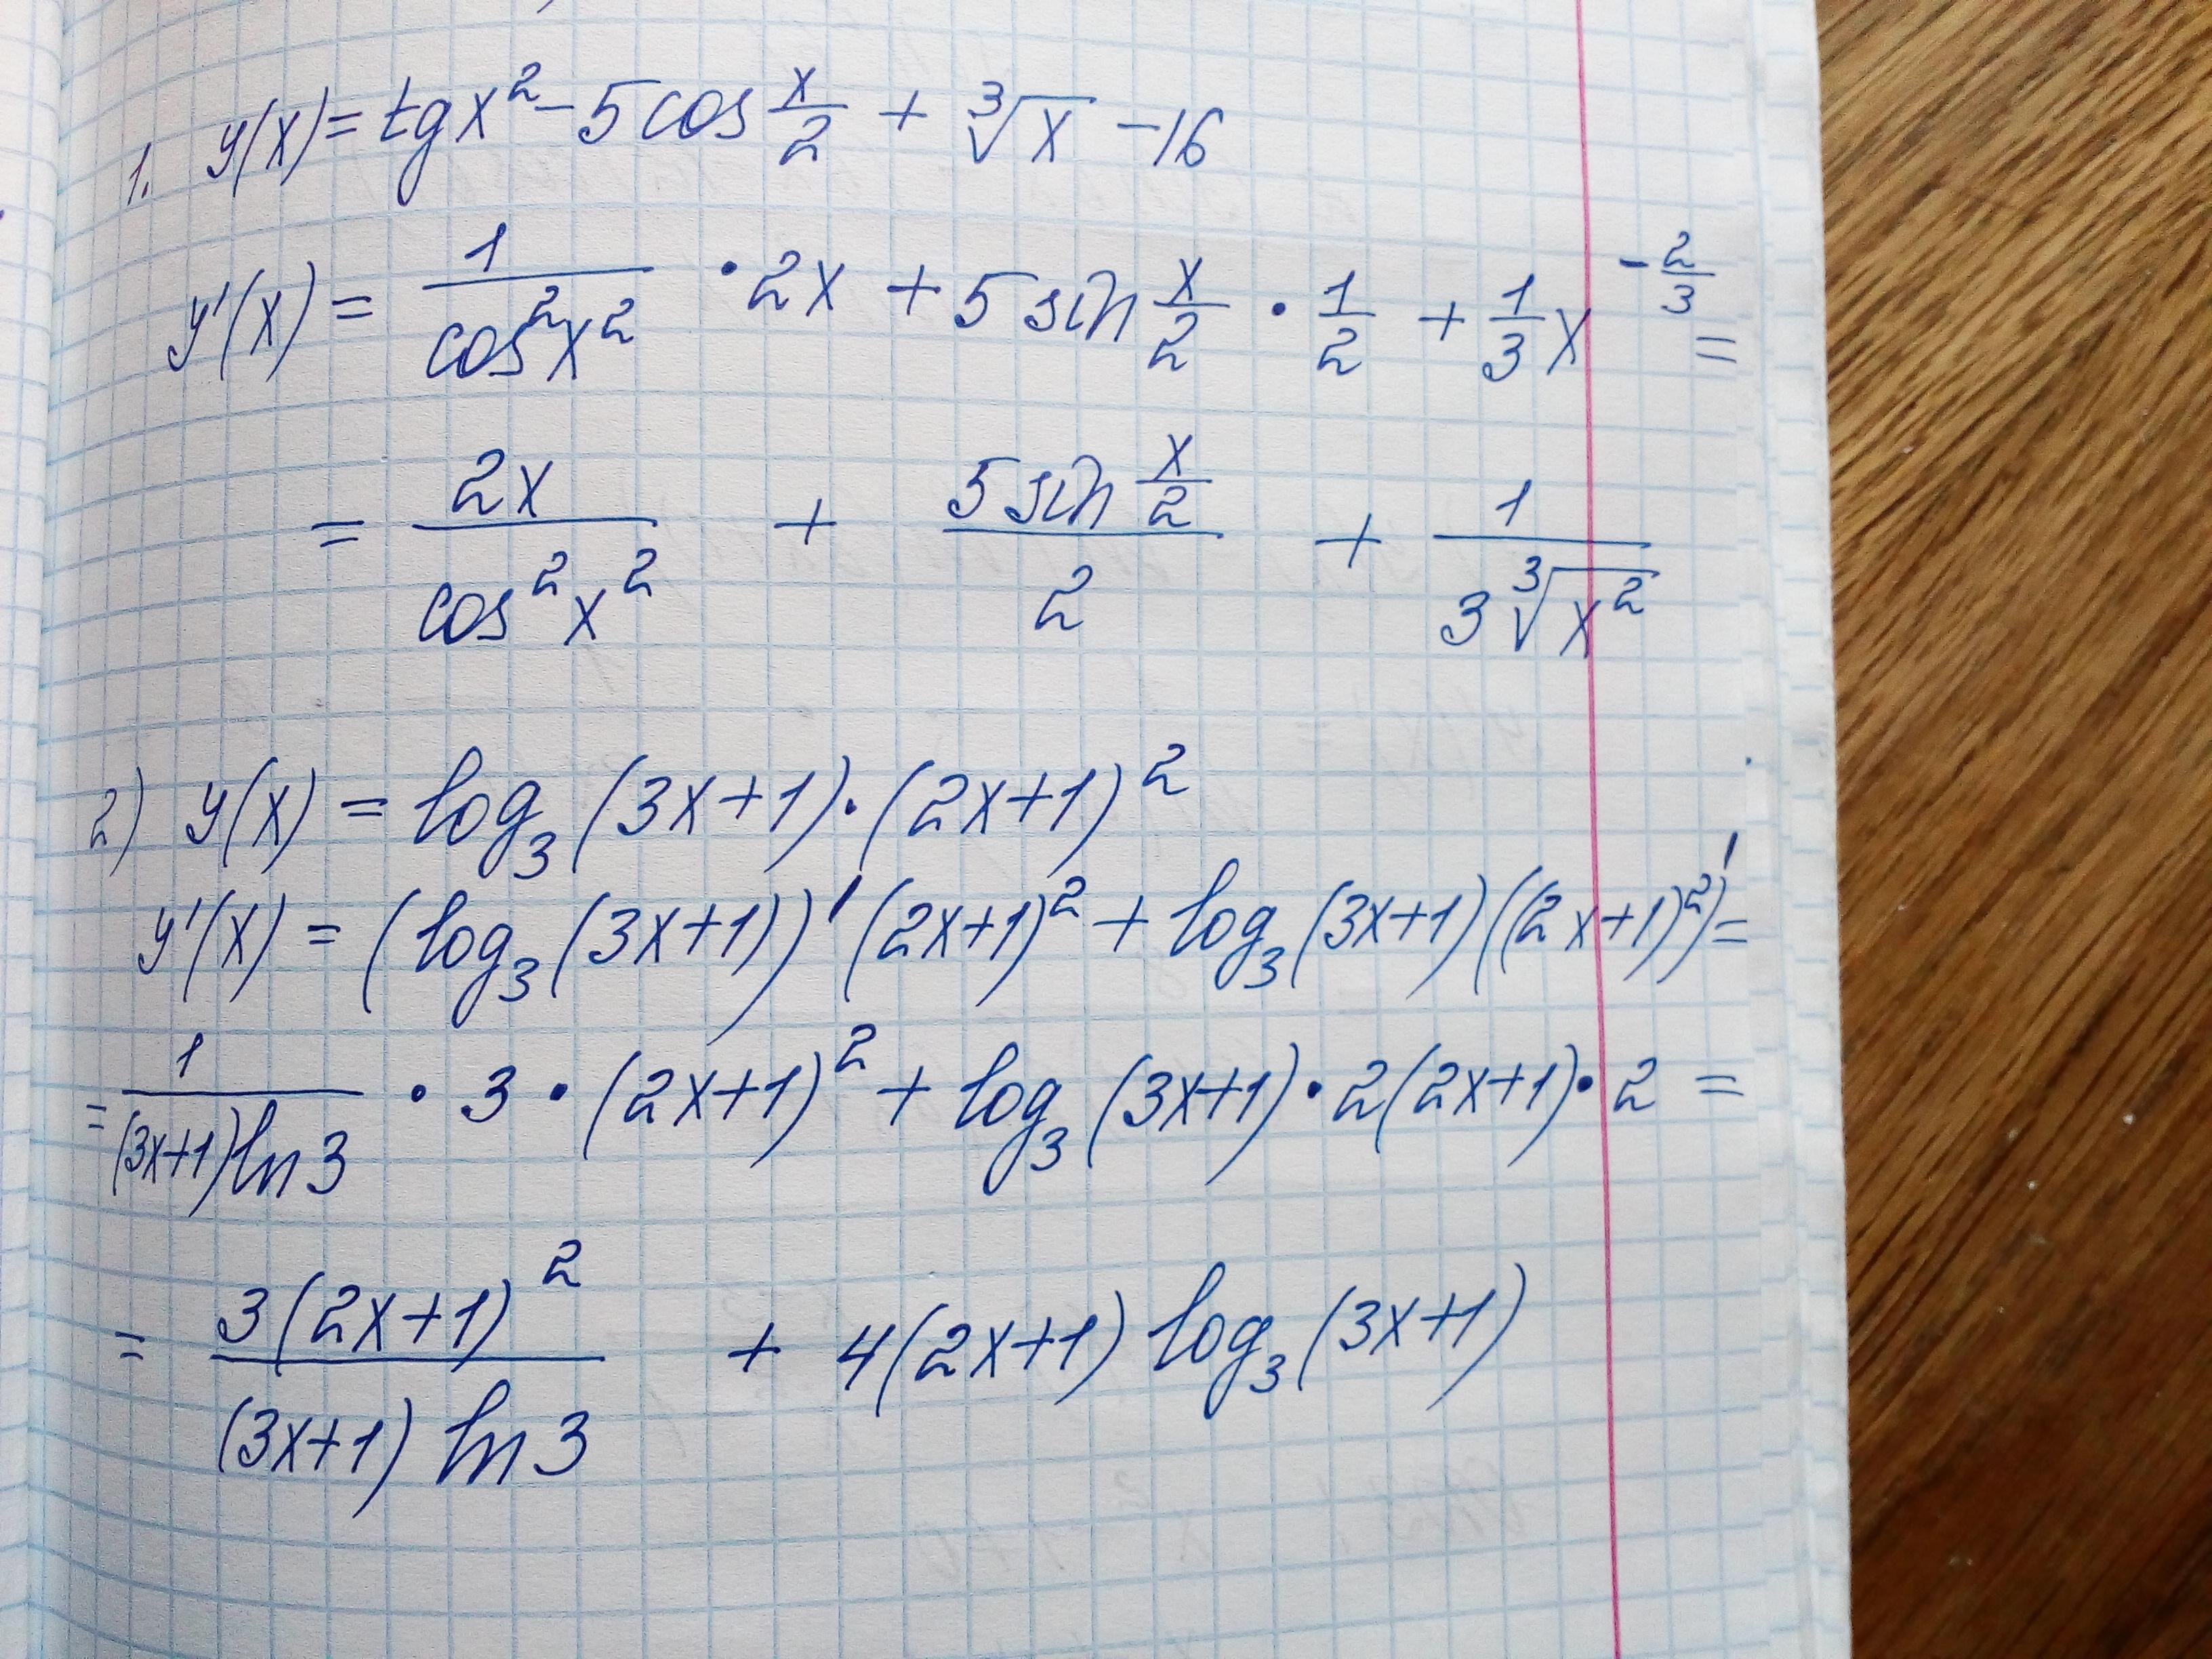 1. y(x) = tgx² - 5cos x/2 + ∛x - 16
y'(x) = 1/cos²x² · 2x + 5sin x/2 · 1/2 + 1/3 x^(-2/3) =
= 2x/cos²x² + 5sin x/2 / 2 + 1/(3∛x²)
2) y(x) = log₃(3x+1)·(2x+1)²
y'(x) = (log₃(3x+1))'(2x+1)² + log₃(3x+1)((2x+1)²)' =
= 1/((3x+1)ln3) · 3 · (2x+1)² + log₃(3x+1)·2(2x+1)·2 =
= 3(2x+1)²/((3x+1) ln3) + 4(2x+1) log₃(3x+1)